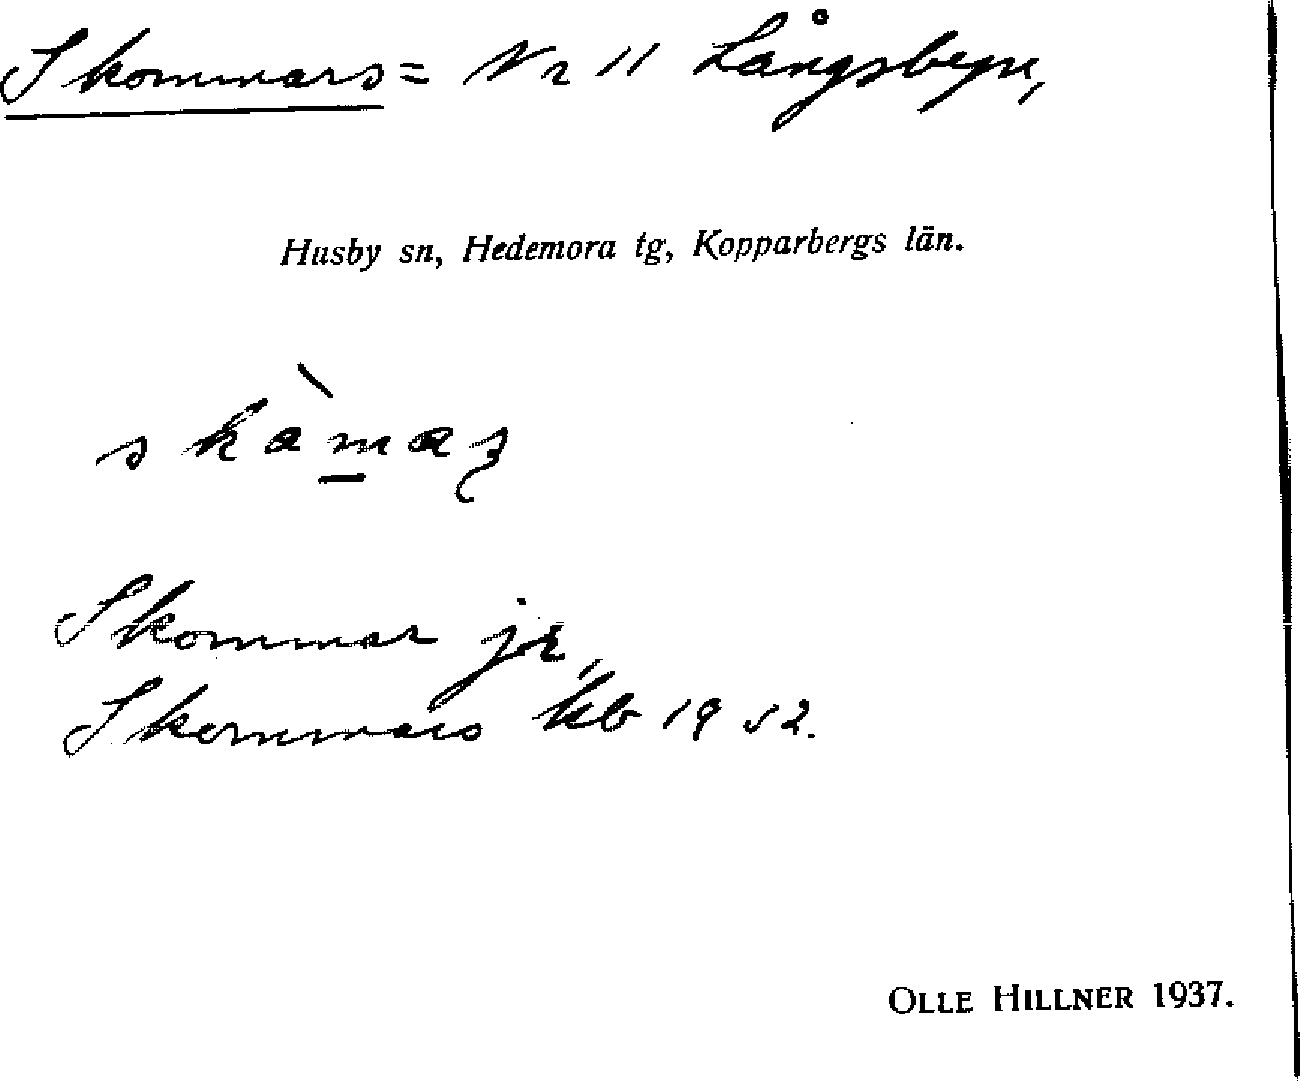 Skommars = Nr 11 Långsbyn,
Husby sn, Hedemora tg, Kopparbergs län.
Skommar jr,
Skommars kb 1952.
OLLE HILLNER 1937.